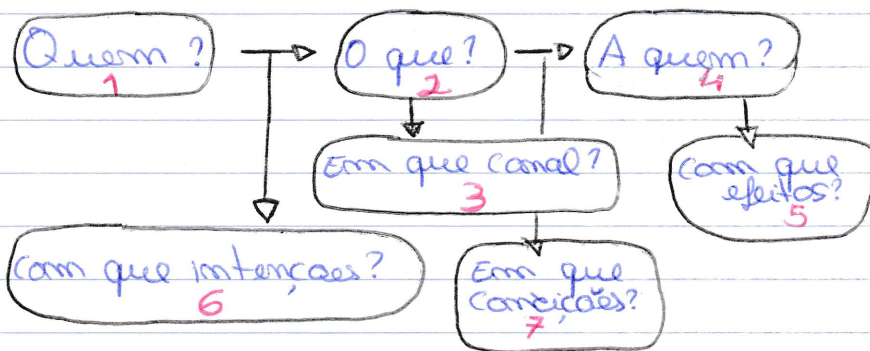 Quem ?
1
O que?
2
A quem?
4
Em que canal?
3
com que
efeitos?
5
com que intenções?
6
Em que
Condições?
7